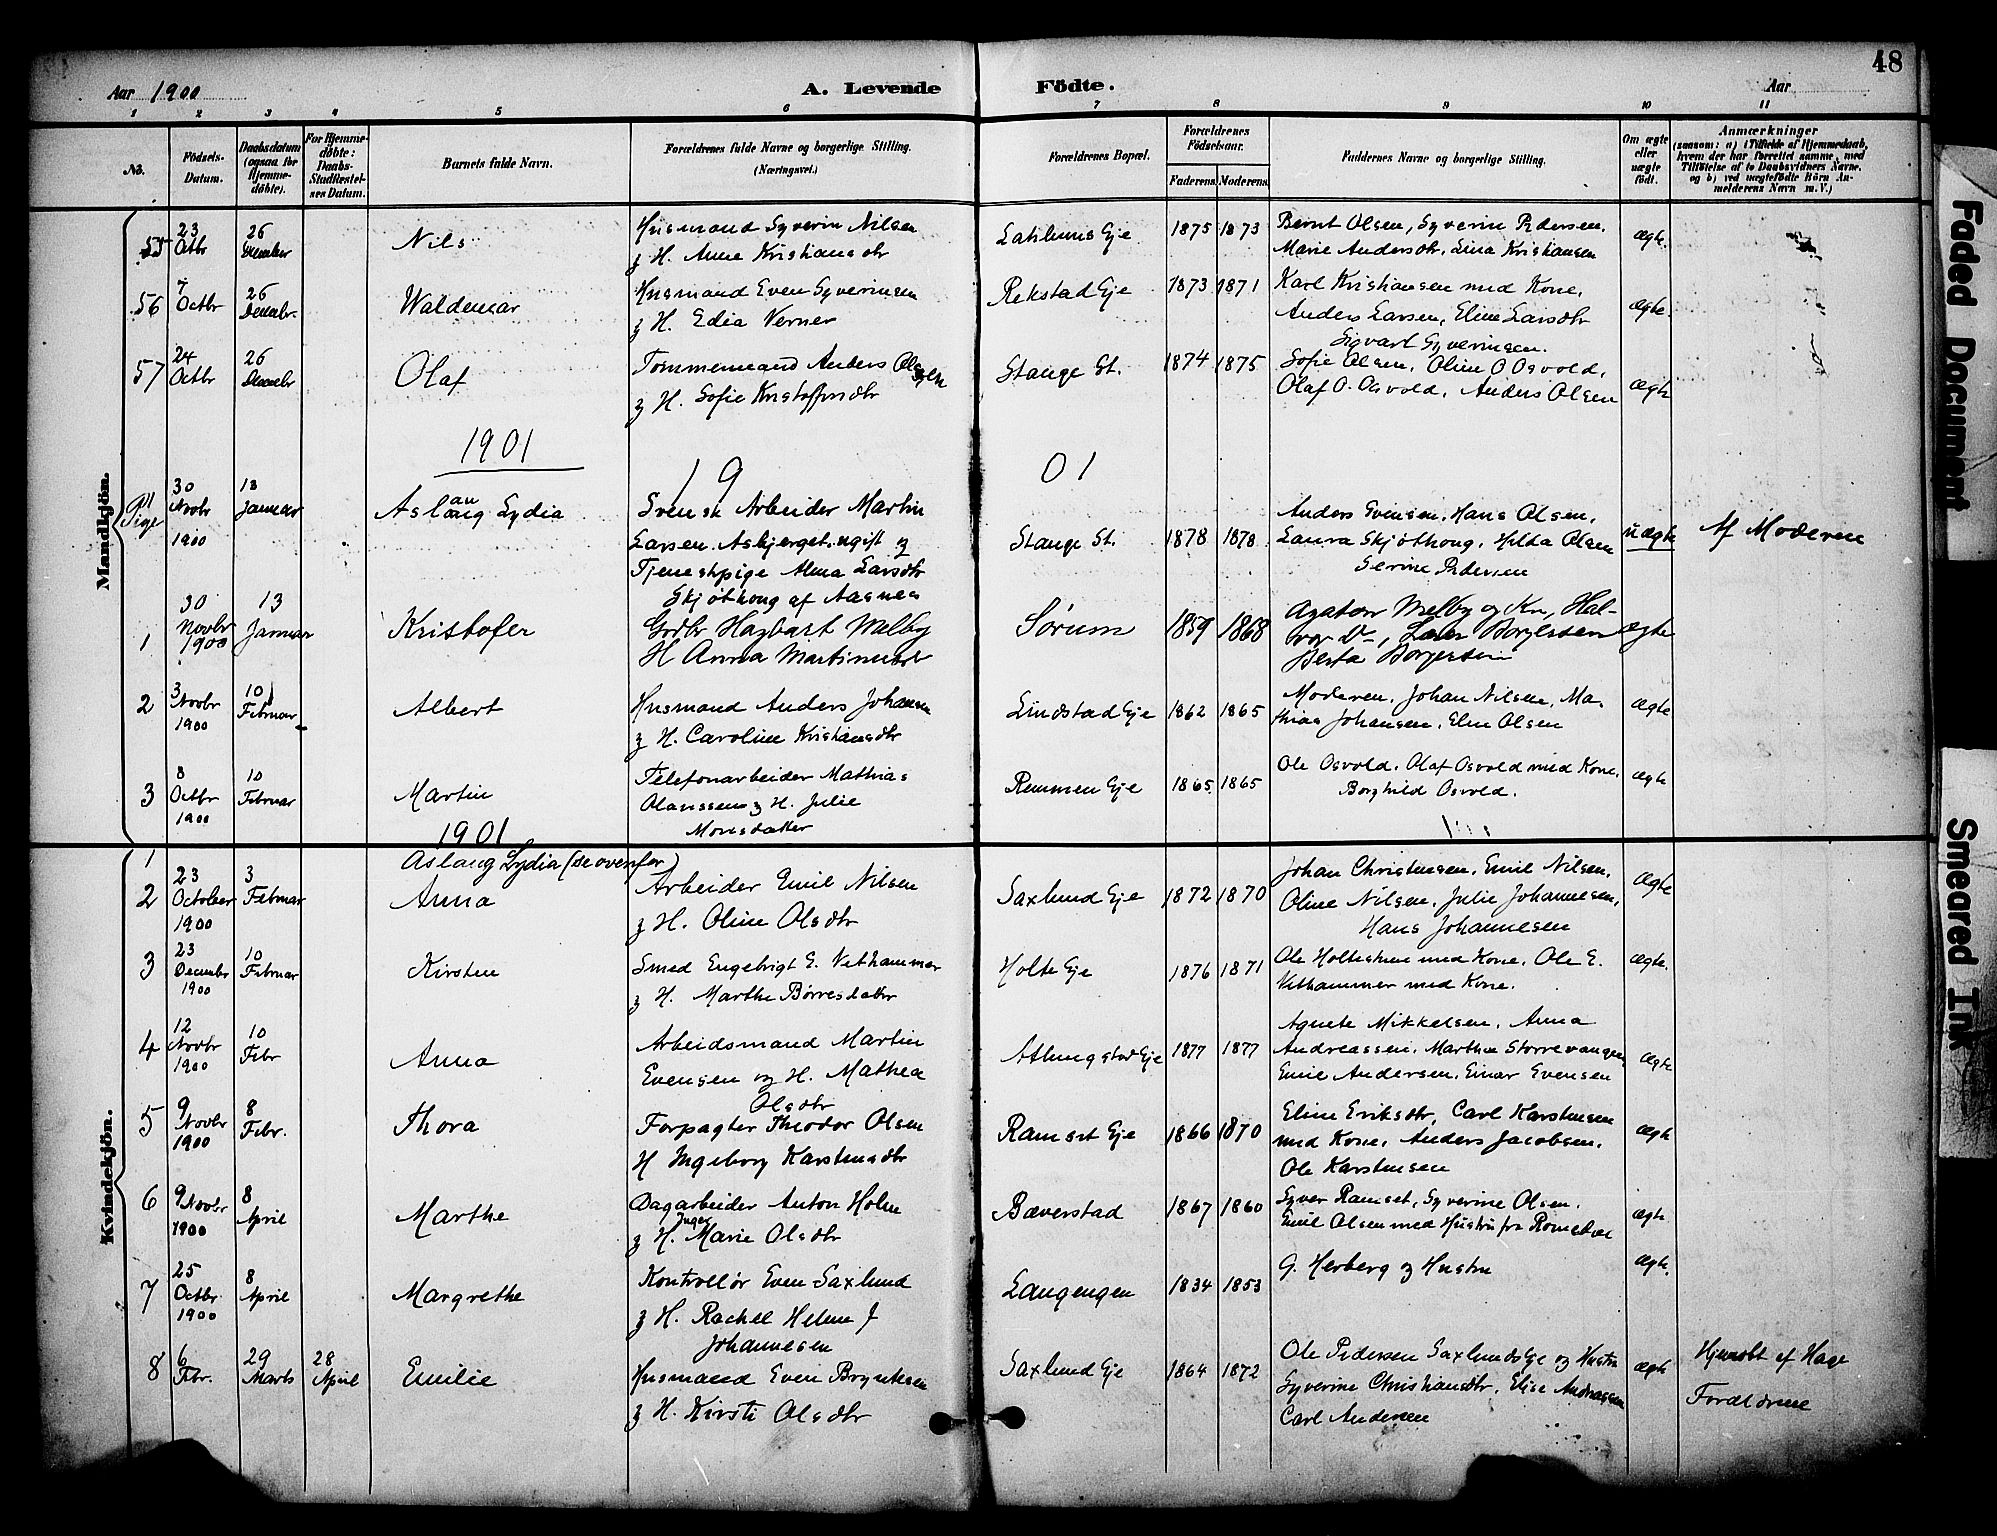 48
Aar 1900
A. Levende Födte.
Aar
1 2 3 4 5 6 7 8 9 10 11
No.
Födsels-Datum.
Daabsdatum (ogsaa for Hjemme-döbte).
For Hjemme-döbte: Daabs-Stadfæstelses Datum.
Barnets fulde Navn.
Forældrenes fulde Navne og borgerlige Stilling. (Næringsvei.)
Forældrenes Bopæl.
Forældrenes Födselsaar.
Faderens. Moderens.
Faddernes Navne og borgerlige Stilling.
Om ægte eller uægte födt.
Anmærkninger
(saasom: a) i Tilfælde af Hjemmedaab, hvem der har forrettet samme, med Tilföielse af to Daabsvidners Navne, og b) ved uægtefödte Börn Anmelderens Navn m. V.)
Mandkjön.
55 23 Octbr 26 Nils
Husmand Syverin Nilsen
H. Anne Kristiansdtr
Eje 1875 1873
Bernt Olsen, Syverine Pedersen,
Marie Andersdtr, Lina Kristiansen
ægte
56 7 Octbr 26 Decembr. Waldemar
Husmand Even Syverinsen
H. Edia Verner
Rekstad Eje 1873 1871
Karl Kristiansen med Kone,
Anders Larsen, Eline Larsdtr
Sigvart Syverinsen.
ægte.
57 24 Octbr 26 Olaf
Tømmermand Anders Olsen
H. Sofie Kristoffersdtr
Stange St. 1874 1875
Sofie Olsen, Oline O Osvold,
Olaf O. Osvold, Anders Olsen
ægte
1901
19 01
Pige 30 Novbr 1900 13 Januar
Aslaug Lydia
Svensk Arbeider Martin
Larsen Asbjerget ugift og
Tjenestpige Alma Larsdtr
Skjøthoug af Aasnes
Stange St. 1878 1878
Anders Evensen, Hans Olsen,
Laura Skjøthoug, Hilda Olsen
Serine Pedersen
uægte
Af Moderen
1 30 Novbr 1900 13 Januar Kristofer
Grdbr Hagbart Melby
H Anna Martinusdtr
Sørum 1859 1868
Agaton Melby og Kn, Hal-
vor Do, Borgersen
Berta Borgersen
ægte
2 3 Novbr 1900 10 Februar Albert
Husmand Anders Johansen
H. Caroline Kristiansdtr
Lindstad Eje 1862 1865
Moderen, Johan Nilsen, Ma-
thias Johansen, Olsen
ægte
3 8 Octbr 1900 10 Februar Martin
Telefonarbeider Mathias
H. Julie
Monsdatter
Remmen Eje 1865 1865
Ole Osvold, Olaf Osvold med Kone,
Borghild Osvold.
ægte
1901
Kvindekjön.
1 Aslaug Lydia (se ovenfor)
2 23 October 1900 3 Februar Anna
Arbeider Emil Nilsen
H. Oline Olsdtr
Saxlund Eje 1872 1870
Johan Christensen, Emil Nilsen,
Oline Nilsen, Julie Johannesen,
Hans Johannesen
ægte
3 23 December 1900 10 Februar Kirsten
Smed Engebrigt E. Vethammer
H. Marthe Børresdatter
Holte Eje 1876 1871
Ole med Kone, Ole E.
Vethammer med Kone.
ægte.
4 12 Novbr 1900 10 Febr Anna
Arbeidsmand Martin
Evensen og H. Mathea
Olsdtr
Eje 1877 1877
Agnete Mikkelsen, Anna
Andreassen, Marthe
Emil Andersen, Einar Evensen
ægte
5 9 Novbr 1900 8 Febr. Thora
Forpagter Theodor Olsen
H Ingeborg Karstensdtr
Ramset Eje 1866 1870
Eline Eriksdtr, Carl Karstensen
med Kone, Anders Jacobsen,
Ole Karstensen
ægte
6 9 Novbr 1900 8 April Marthe
Dagarbeider Anton Holm
H. Inger Marie Olsdtr
Bæverstad 1867 1860
Syver Ramset, Syverine Olsen,
Emil Olsen med Hustru fra
ægte
7 25 Octbr 1900 8 April Margrethe
Kontrollør Even Saxlund
H. Rachel Helene f
Johannesen
Langengen 1834 1853
G. Herberg og Hustru
ægte.
8 6 Febr. 29 Marts 28 April Emilie
Husmand Even
H. Kirsti Olsdtr
Saxlund Eje 1864 1872
Ole Pedersen Saxlundseje og Hustru
Syverine Christiansdtr, Elise Andreassen
Carl Andersen
ægte
Hjemdøbt af
Forældrene
Faded Document
Smeared Ink